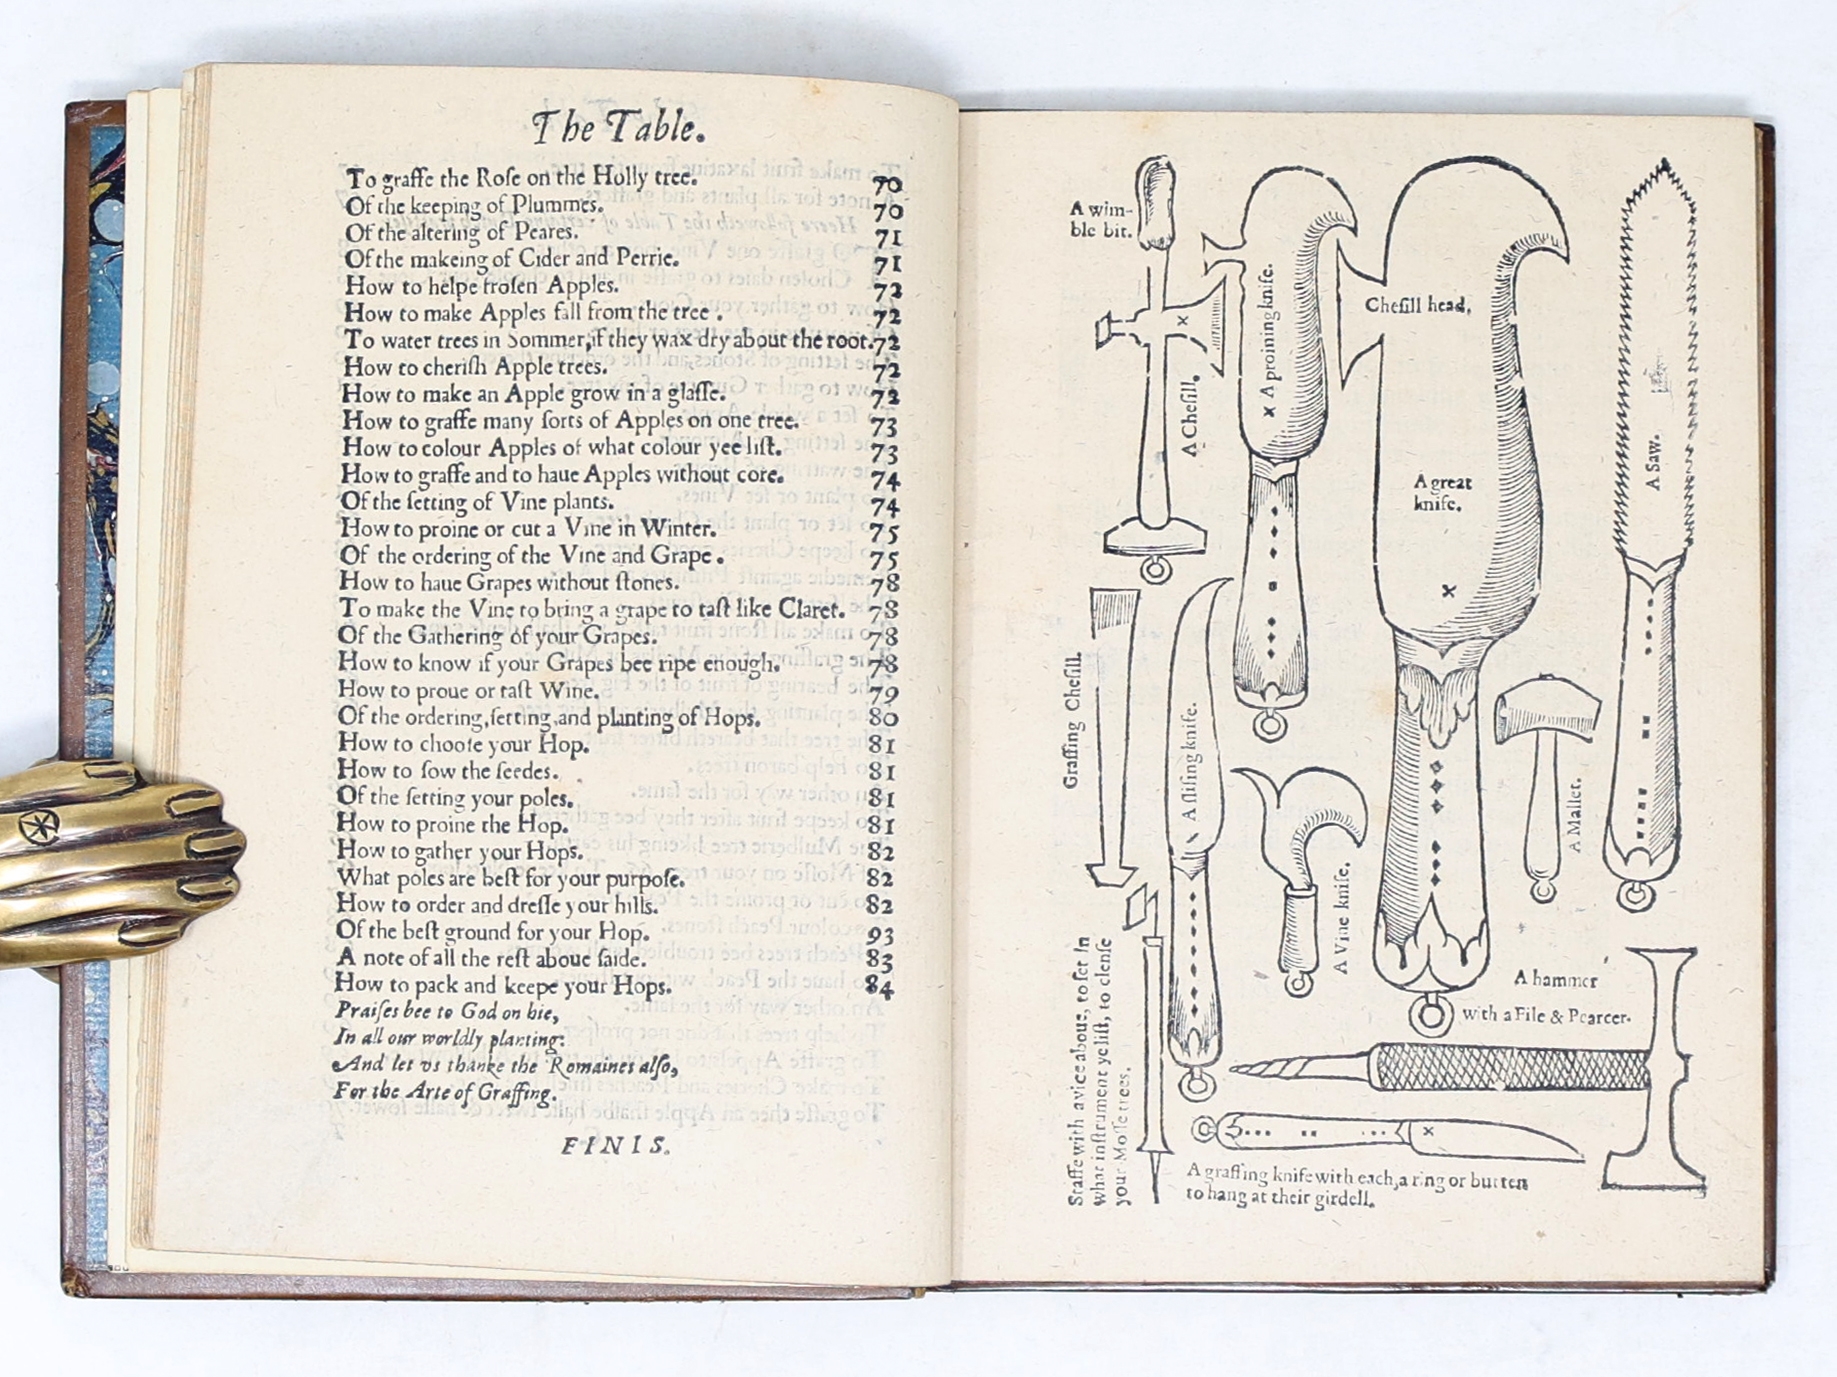 The Table.
To graffe the Rose on the Holly tree. 70
Of the keeping of Plummes. 70
Of the altering of Peares. 71
Of the makeing of Cider and Perrie. 71
How to helpe frosen Apples. 72
How to make Apples fall from the tree . 72
To water trees in Sommer,if they wax dry about the root. 72
How to cherish Apple trees. 72
How to make an Apple grow in a glasse. 72
How to graffe many sorts of Apples on one tree. 73
How to colour Apples of what colour yee list. 73
How to graffe and to haue Apples without core. 74
Of the setting of Vine plants. 74
How to proine or cut a Vine in Winter. 75
Of the ordering of the Vine and Grape . 75
How to haue Grapes without stones. 78
To make the Vine to bring a grape to tast like Claret. 78
Of the Gathering of your Grapes. 78
How to know if your Grapes bee ripe enough. 78
How to proue or tast Wine. 79
Of the ordering,setting,and planting of Hops. 80
How to choose your Hop. 81
How to sow the seedes. 81
Of the setting your poles. 81
How to proine the Hop. 81
How to gather your Hops. 82
What poles are best for your purpose. 82
How to order and dresse your hills. 82
Of the best ground for your Hop. 93
A note of all the rest aboue saide. 83
How to pack and keepe your Hops. 84
Praises bee to God on hie,
In all our worldly planting:
And let vs thanke the Romaines also,
For the Arte of Graffing.
FINIS.
A wim-
ble bit.
A Chesill.
A proining knife.
Chesill head.
A great
knife.
A Saw.
Graffing Chesill.
A slising knife.
A Vine knife.
A Mallet.
A hammer
with a File & Pearcer.
Staffe with a vice aboue, to set in
what instrument ye list, to clense
your Mosse trees.
A graffing knife with each,a ring or button
to hang at their girdell.